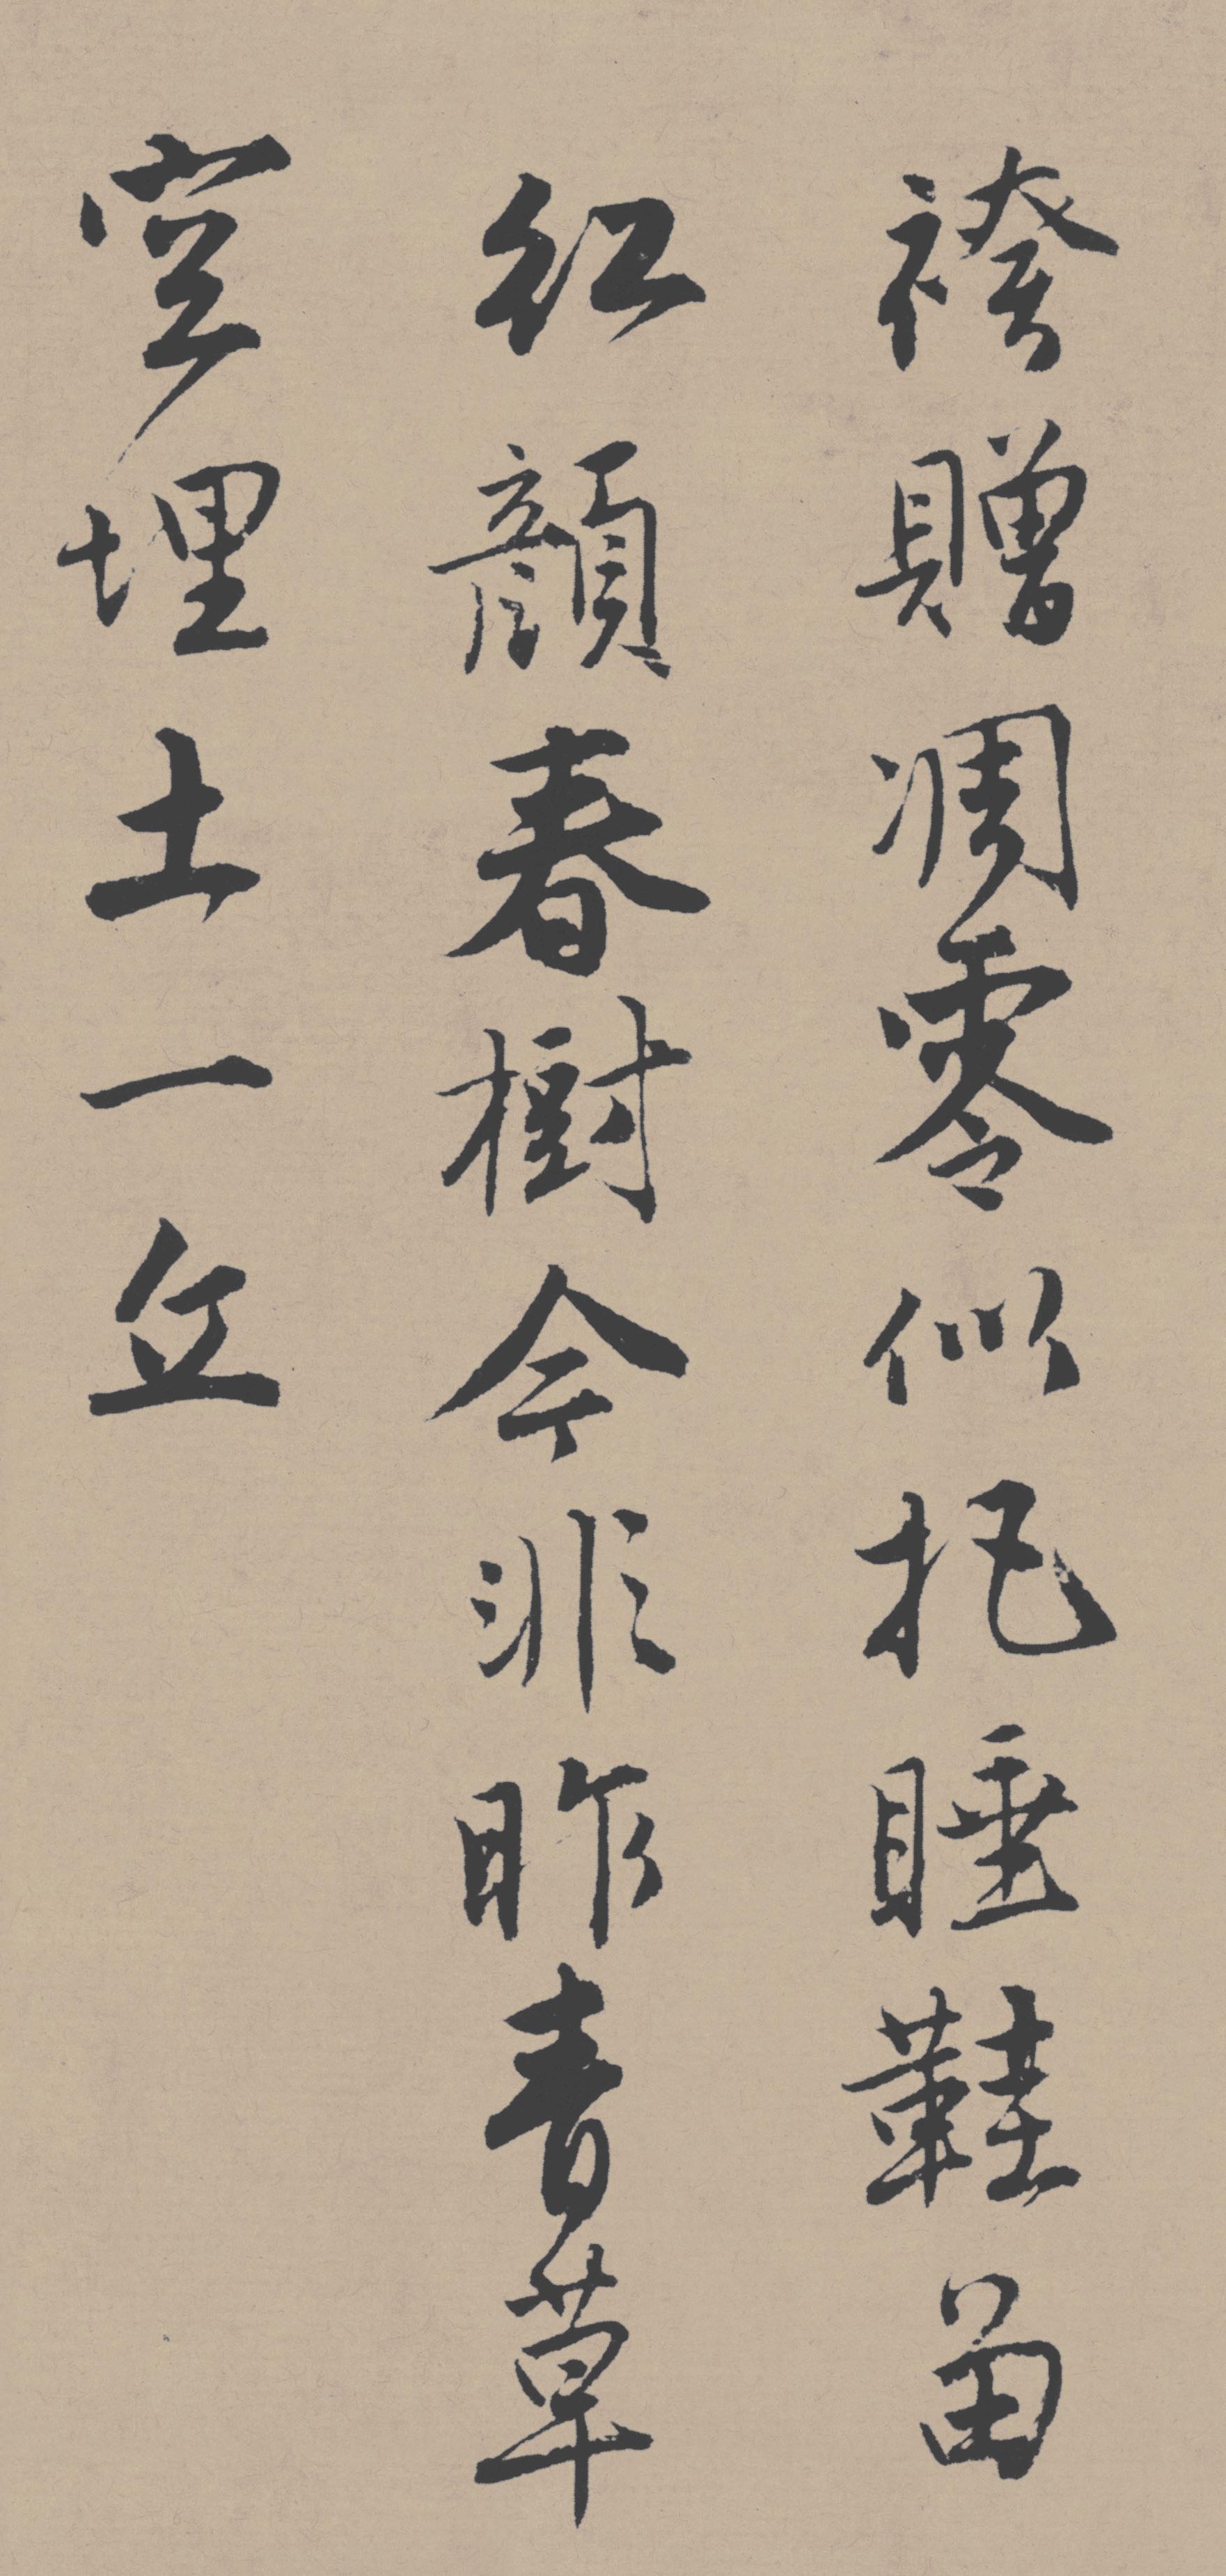 袴贈凋零似把睡鞋留
紅顏春樹今非昨青草
空埋土一丘